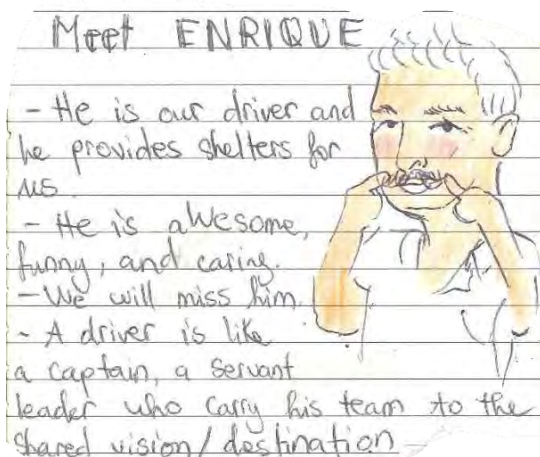 Meet ENRIQUE
- He is our driver and
he provides shelters for
us.
- He is awesome,
funny, and caring.
- We will miss him.
- A driver is like
a captain, a servant
leader who carry his team to the
shared vision/destination